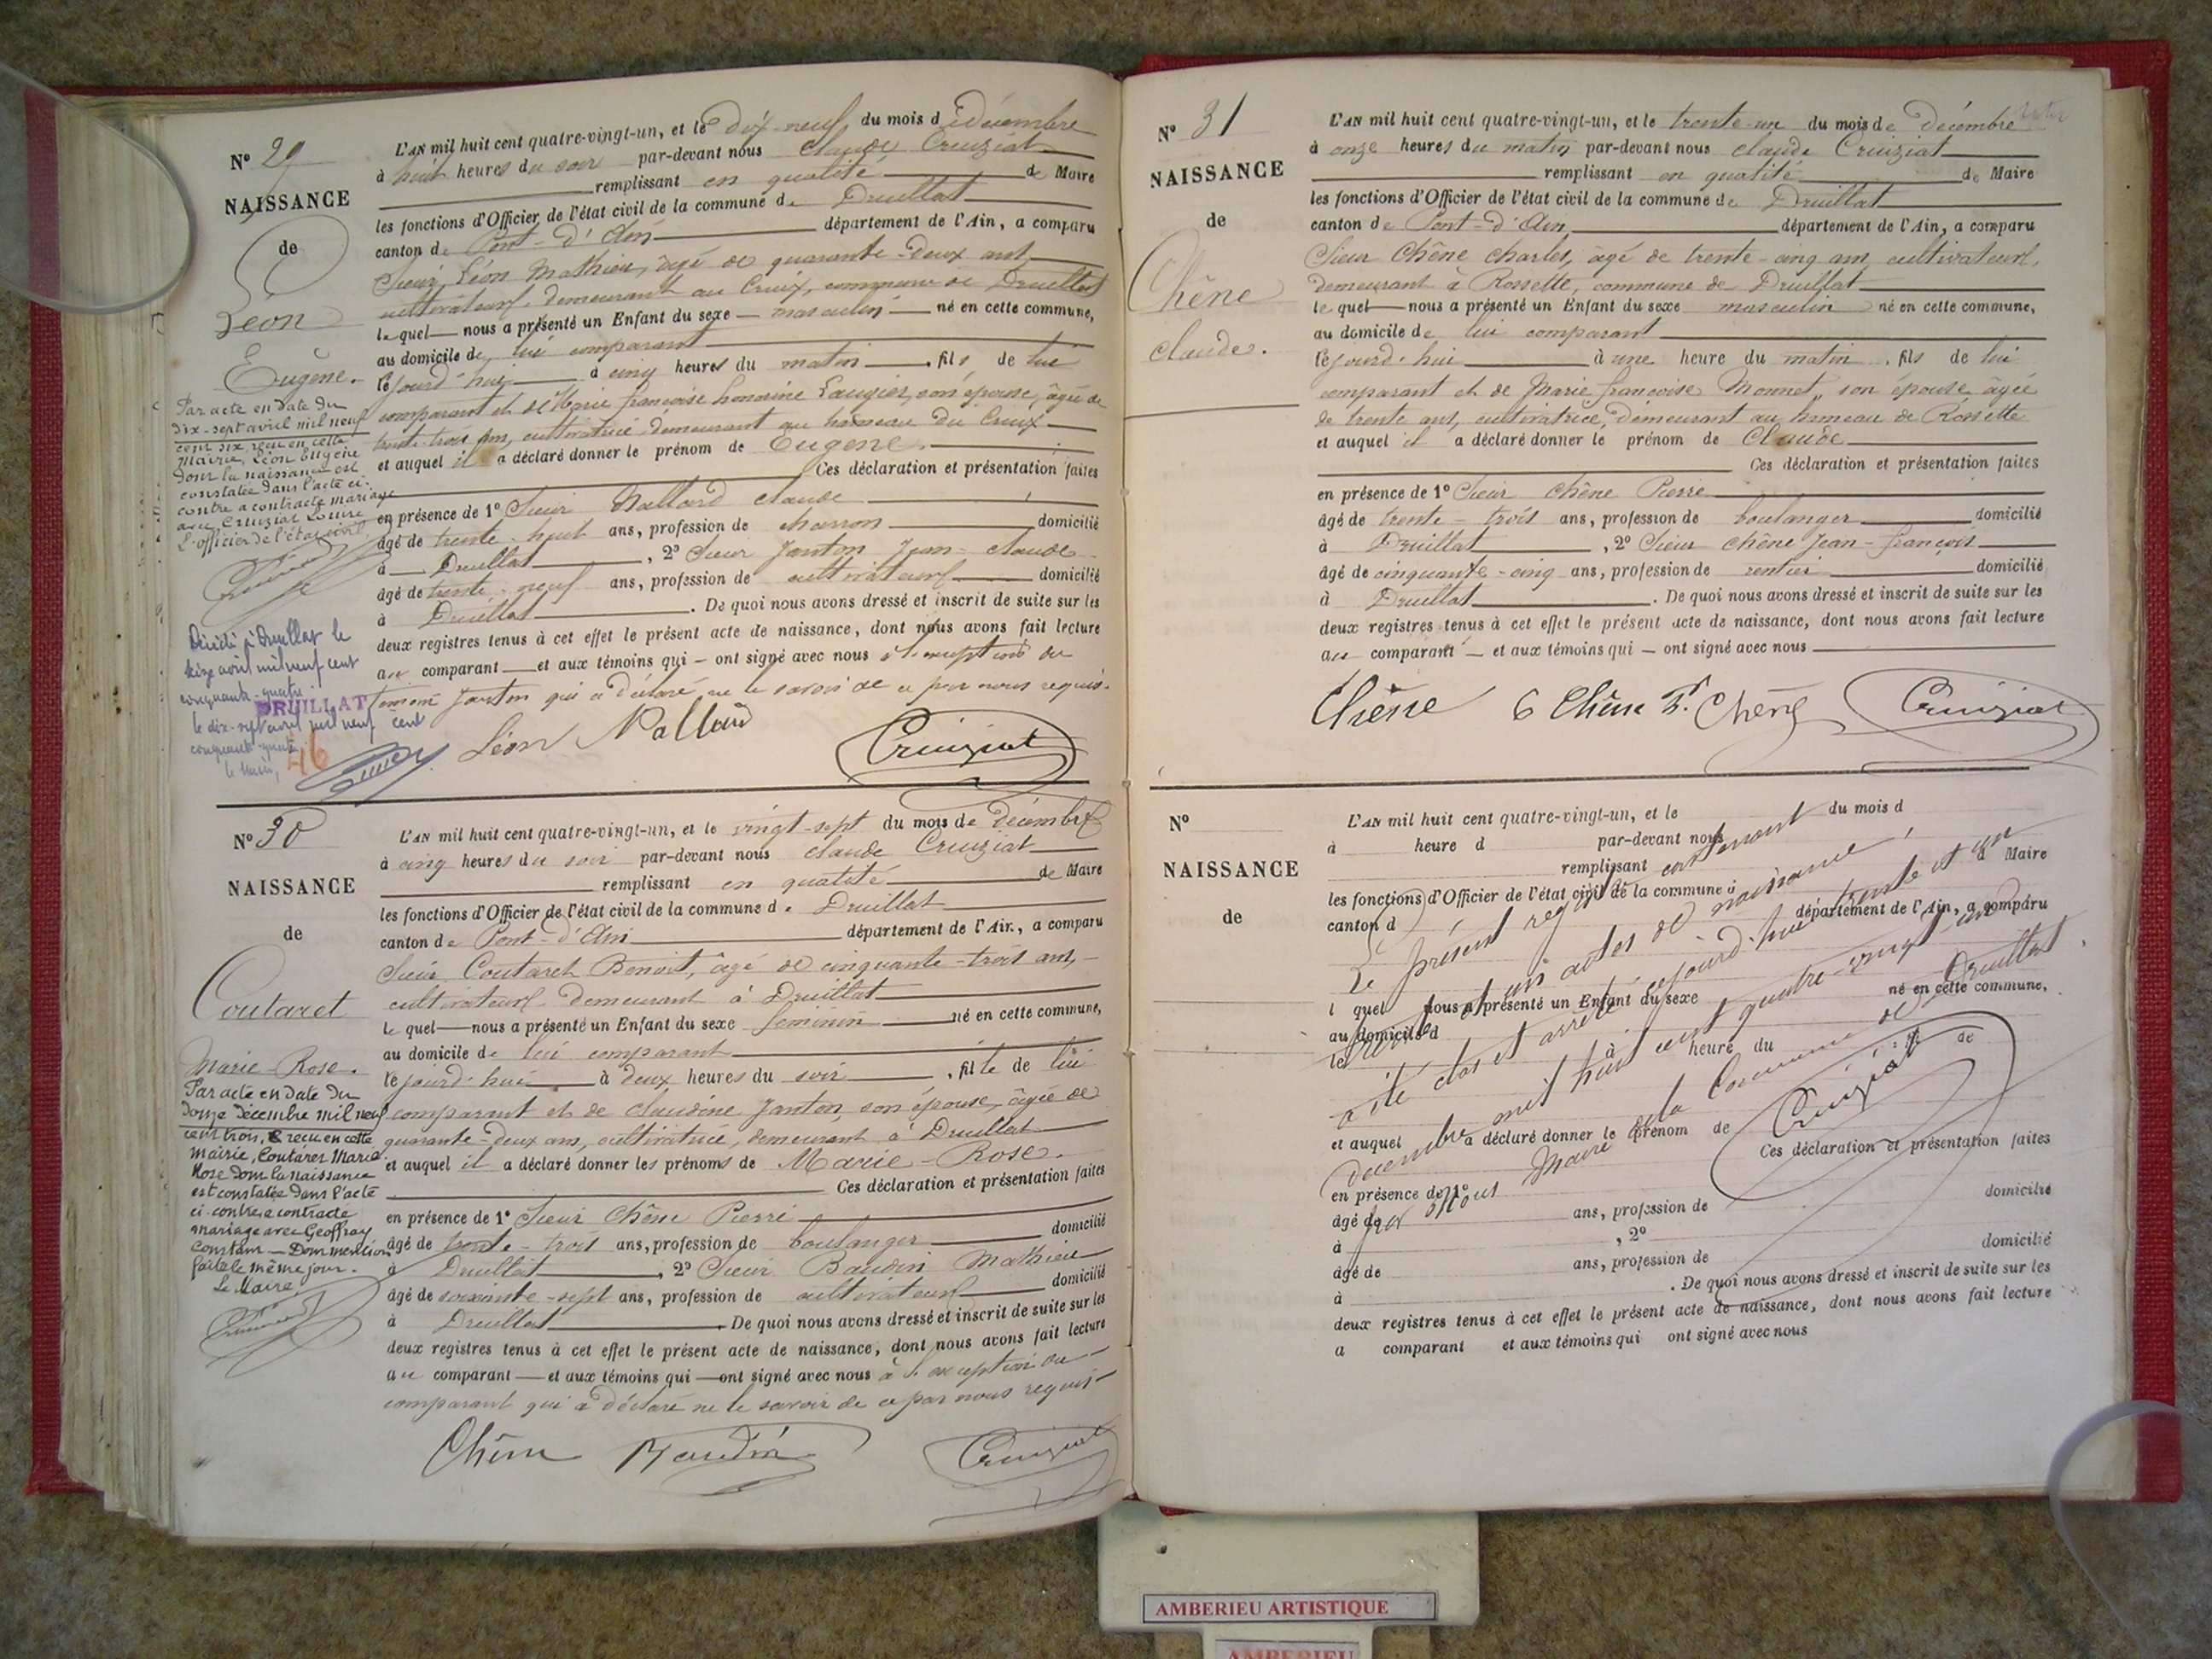 N° 29
NAISSANCE
de
Léon
Eugène.
Par acte en date du
dix-sept avril mil neuf
cent six, reçu en cette
Mairie, Léon Eugène
dont la naissance est
constatée dans l'acte ci-
contre a contracté mariage
avec Cruiziat Louise
L'officier de l'état civil
Décédé à Druillat le
seize avril mil neuf cent
cinquante-quatre
DRUILLAT
le dix-sept avril mil neuf cent
cinquante-quatre
le Maire,
46
L'AN mil huit cent quatre-vingt-un, et le dix-neuf du mois d décembre
à huit heures du soir par-devant nous Claude Cruiziat
remplissant en qualité de Maire
les fonctions d'Officier de l'état civil de la commune de Druillat
canton de Pont-d'Ain département de l'Ain, a comparu
Sieur Léon Mathieu, âgé de quarante-deux ans,
cultivateur, demeurant au Creux, commune de Druillat
lequel nous a présenté un Enfant du sexe masculin né en cette commune,
au domicile de lui comparant
cejourd'hui à cinq heures du matin, fils de lui
comparant et de Marie françoise honorine Laugier, son épouse, âgée de
trente-trois ans, cultivatrice, demeurant au hameau du Creux
et auquel il a déclaré donner le prénom de Eugène.
Ces déclaration et présentation faites
en présence de 1° Sieur Nallard Claude
âgé de trente-huit ans, profession de charron domicilié
à Druillat, 2° Sieur Janton Jean-claude
âgé de trente-neuf ans, profession de cultivateur domicilié
à Druillat. De quoi nous avons dressé et inscrit de suite sur les
deux registres tenus à cet effet le présent acte de naissance, dont nous avons fait lecture
au comparant et aux témoins qui ont signé avec nous à l'exception du
témoin Janton qui a déclaré ne le savoir de ce par nous requis.
Léon Nallard Cruiziat
N° 30
NAISSANCE
de
Coutaret
Marie Rose.
Par acte en date du
douze décembre mil neuf
cent trois, reçu en cette
mairie, Coutaret Marie
Rose dont la naissance
est constatée dans l'acte
ci-contre a contracté
mariage avec Geoffray
Constant — Dont mention
faite le même jour.
Le Maire,
L'AN mil huit cent quatre-vingt-un, et le vingt-sept du mois de décembre
à cinq heures du soir par-devant nous claude Cruiziat
remplissant en qualité de Maire
les fonctions d'Officier de l'état civil de la commune de Druillat
canton de Pont-d'Ain département de l'Ain, a comparu
Sieur Coutaret Benoit, âgé de cinquante-trois ans,
cultivateur demeurant à Druillat
lequel nous a présenté un Enfant du sexe féminin né en cette commune,
au domicile de lui comparant
cejourd'hui à deux heures du soir, fille de lui
comparant et de claudine Janton, son épouse, âgée de
quarante-deux ans, cultivatrice, demeurant à Druillat
et auquel il a déclaré donner les prénoms de Marie-Rose.
Ces déclaration et présentation faites
en présence de 1° Sieur Chêne Pierre
âgé de trente-trois ans, profession de boulanger domicilié
à Druillat, 2° Sieur Baudin Mathieu
âgé de soixante-sept ans, profession de cultivateur domicilié
à Druillat. De quoi nous avons dressé et inscrit de suite sur les
deux registres tenus à cet effet le présent acte de naissance, dont nous avons fait lecture
au comparant et aux témoins qui ont signé avec nous à l'exception du
comparant qui a déclaré ne le savoir de ce par nous requis
Chêne Baudin Cruiziat
N° 31
NAISSANCE
de
Chêne
claude.
L'AN mil huit cent quatre-vingt-un, et le trente-un du mois de décembre
à onze heures du matin par-devant nous claude Cruiziat
remplissant en qualité de Maire
les fonctions d'Officier de l'état civil de la commune de Druillat
canton de Pont-d'Ain, département de l'Ain, a comparu
Sieur Chêne Charles, âgé de trente-cinq ans, cultivateur,
demeurant à Rossette, commune de Druillat
lequel nous a présenté un Enfant du sexe masculin né en cette commune,
au domicile de lui comparant
cejourd'hui à une heure du matin, fils de lui
comparant et de Marie françoise Monnet, son épouse âgée
de trente ans, cultivatrice, demeurant au hameau de Rossette
et auquel il a déclaré donner le prénom de Claude
Ces déclaration et présentation faites
en présence de 1° Sieur Chêne Pierre
âgé de trente-trois ans, profession de boulanger domicilié
à Druillat, 2° Sieur Chêne Jean-françois
âgé de cinquante-cinq ans, profession de rentier domicilié
à Druillat. De quoi nous avons dressé et inscrit de suite sur les
deux registres tenus à cet effet le présent acte de naissance, dont nous avons fait lecture
au comparant et aux témoins qui ont signé avec nous
Chêne Chêne Chêne Cruiziat
N°
NAISSANCE
de
L'AN mil huit cent quatre-vingt-un, et le du mois d
à heure d par-devant nous
remplissant d Maire
les fonctions d'Officier de l'état civil de la commune d
canton d département de l'Ain, a comparu
l quel nous a présenté un Enfant du sexe né en cette commune,
au domicile d
le à heure du , fil de
et auquel a déclaré donner le prénom de
Ces déclaration et présentation faites
en présence de 1°
âgé de ans, profession de domicilié
à , 2°
âgé de ans, profession de domicilié
à . De quoi nous avons dressé et inscrit de suite sur les
deux registres tenus à cet effet le présent acte de naissance, dont nous avons fait lecture
a comparant et aux témoins qui ont signé avec nous
Le présent registre contenant
trente et un actes de naissance,
a été clos et arrêté cejourd'hui trente et un
décembre mil huit cent quatre-vingt un
par nous Maire de la Commune de Druillat
Cruiziat
AMBERIEU ARTISTIQUE
AMBERIEU